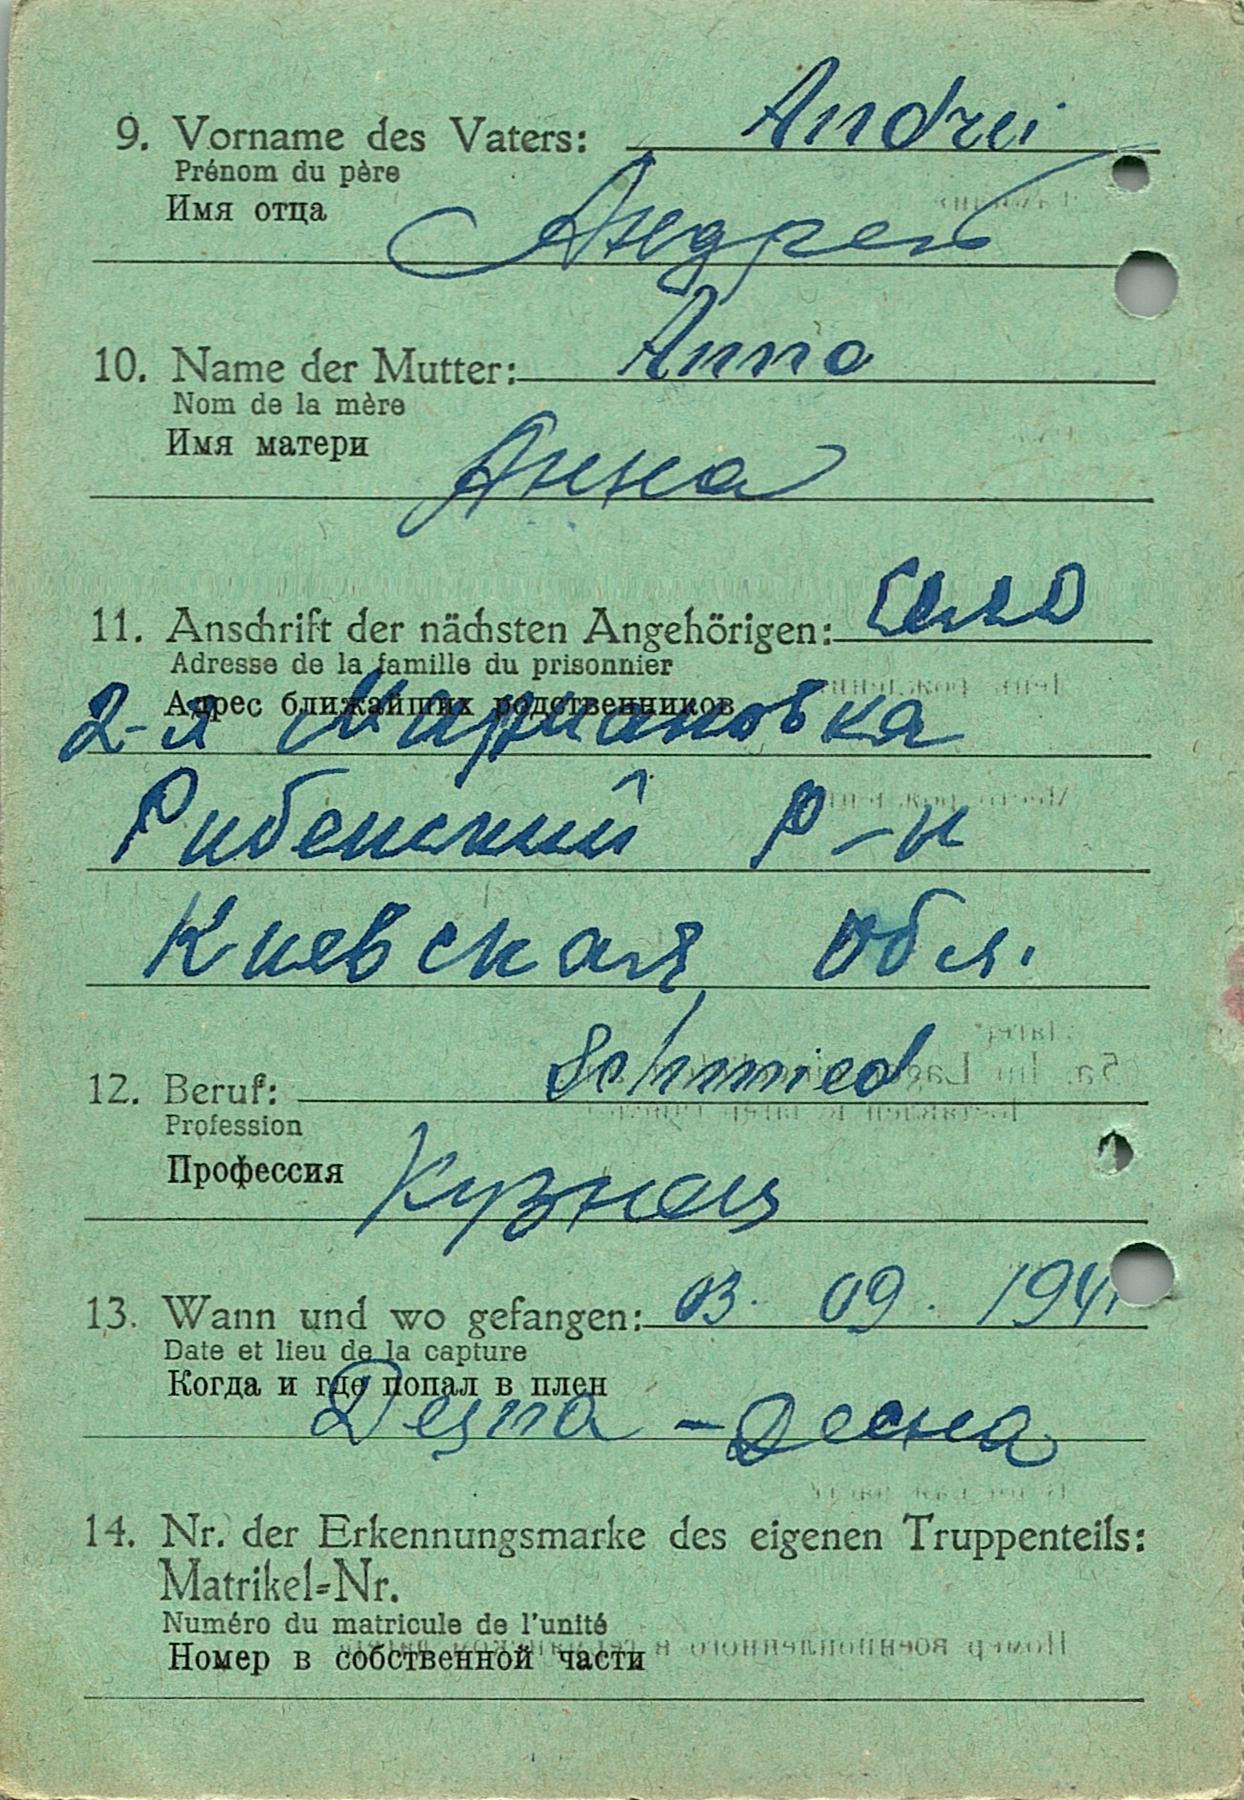 9. Vorname des Vaters: Andrei
Prénom du père
Имя отца
Андрей
10. Name der Mutter: Anna
Nom de la mère
Имя матери
Анна
11. Anschrift der nächsten Angehörigen: село
Adresse de la famille du prisonnier
Адрес ближайших родственников
2-я Мариановка
Рибенский р-н
Киевская обл.
12. Beruf: Schmied
Profession
Профессия
Кузнец
13. Wann und wo gefangen: 03. 09. 1941
Date et lieu de la capture
Когда и где попал в плен
Desna - Десна
14. Nr. der Erkennungsmarke des eigenen Truppenteils:
Matrikel=Nr.
Numéro du matricule de l'unité
Номер в собственной части